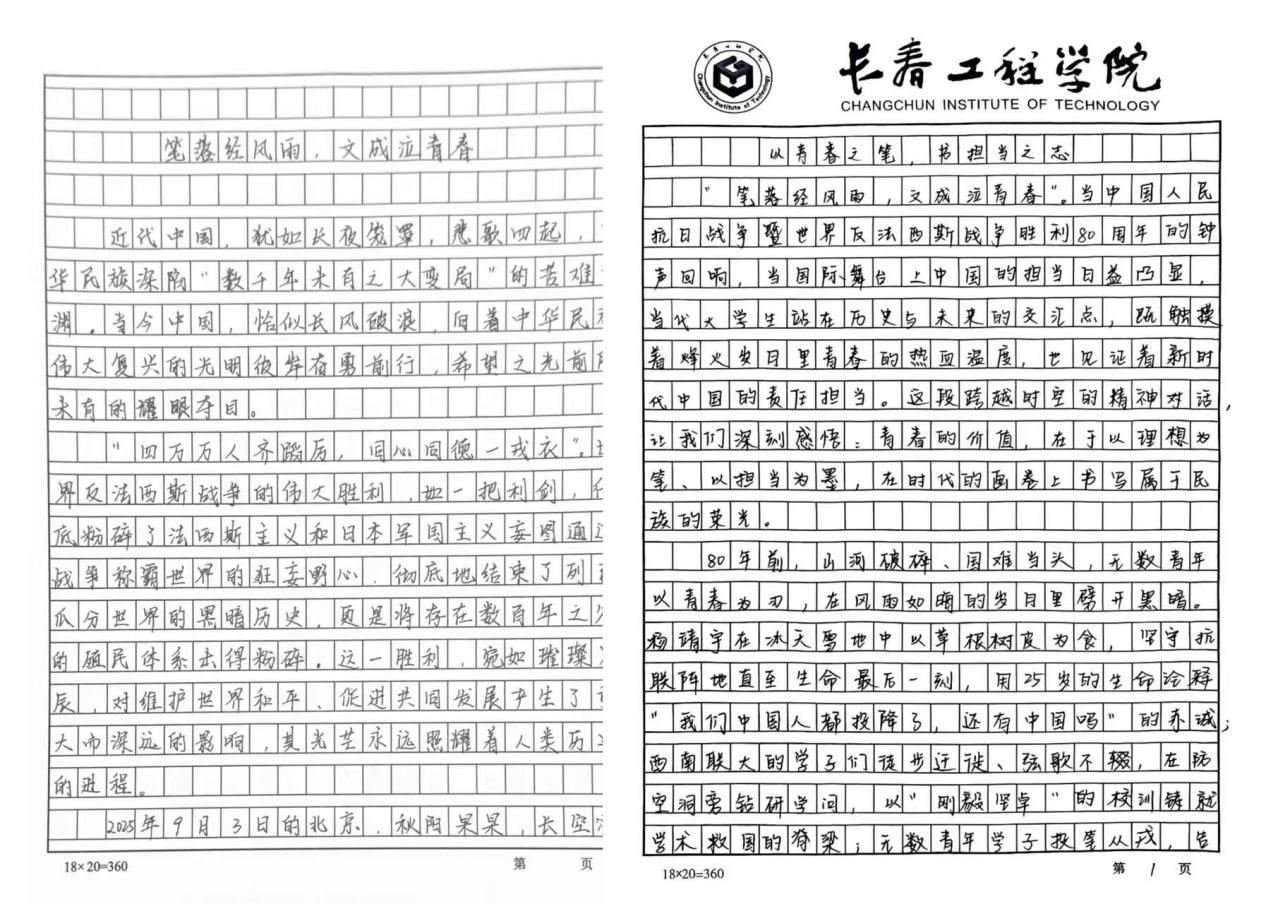 笔落经风雨，文成泣青春
近代中国，犹如长夜笼罩，悲歌四起，
华民族深陷“数千年未有之大变局”的苦难
渊。当今中国，恰似长风破浪，向着中华民
伟大复兴的光明彼岸奋勇前行，希望之光前所
未有的耀眼夺目。
“四万万人齐蹈厉，同心同德一戎衣”。
界反法西斯战争的伟大胜利，如一把利剑，
底粉碎了法西斯主义和日本军国主义妄图通过
战争称霸世界的狂妄野心，彻底地结束了列
瓜分世界的黑暗历史，更是将存在数百年之久
的殖民体系击得粉碎。这一胜利，宛如璀璨
辰，对维护世界和平、促进共同发展产生了
大而深远的影响，其光芒永远照耀着人类历
的进程。
2025年9月3日的北京，秋阳杲杲，长空
18×20=360
第 页
长春工程学院
CHANGCHUN INSTITUTE OF TECHNOLOGY
以青春之笔，书担当之志
“笔落经风雨，文成泣青春”。当中国人民
抗日战争暨世界反法西斯战争胜利80周年的钟
声回响，当国际舞台上中国的担当日益凸显，
当代大学生站在历史与未来的交汇点，既触摸
着烽火岁月里青春的热血温度，也见证着新时
代中国的责任担当。这段跨越时空的精神对话，
让我们深刻感悟：青春的价值，在于以理想为
笔、以担当为墨，在时代的画卷上书写属于民
族的荣光。
80年前，山河破碎、国难当头，无数青年
以青春为刃，在风雨如晦的岁月里劈开黑暗。
杨靖宇在冰天雪地中以草根树皮为食，坚守抗
联阵地直至生命最后一刻，用25岁的生命诠释
“我们中国人都投降了，还有中国吗”的赤诚；
西南联大的学子们徒步迁徙、弦歌不辍，在防
空洞旁钻研学问，以“刚毅坚卓”的校训铸就
学术救国的脊梁；无数青年学子投笔从戎，告
18×20=360
第 1 页